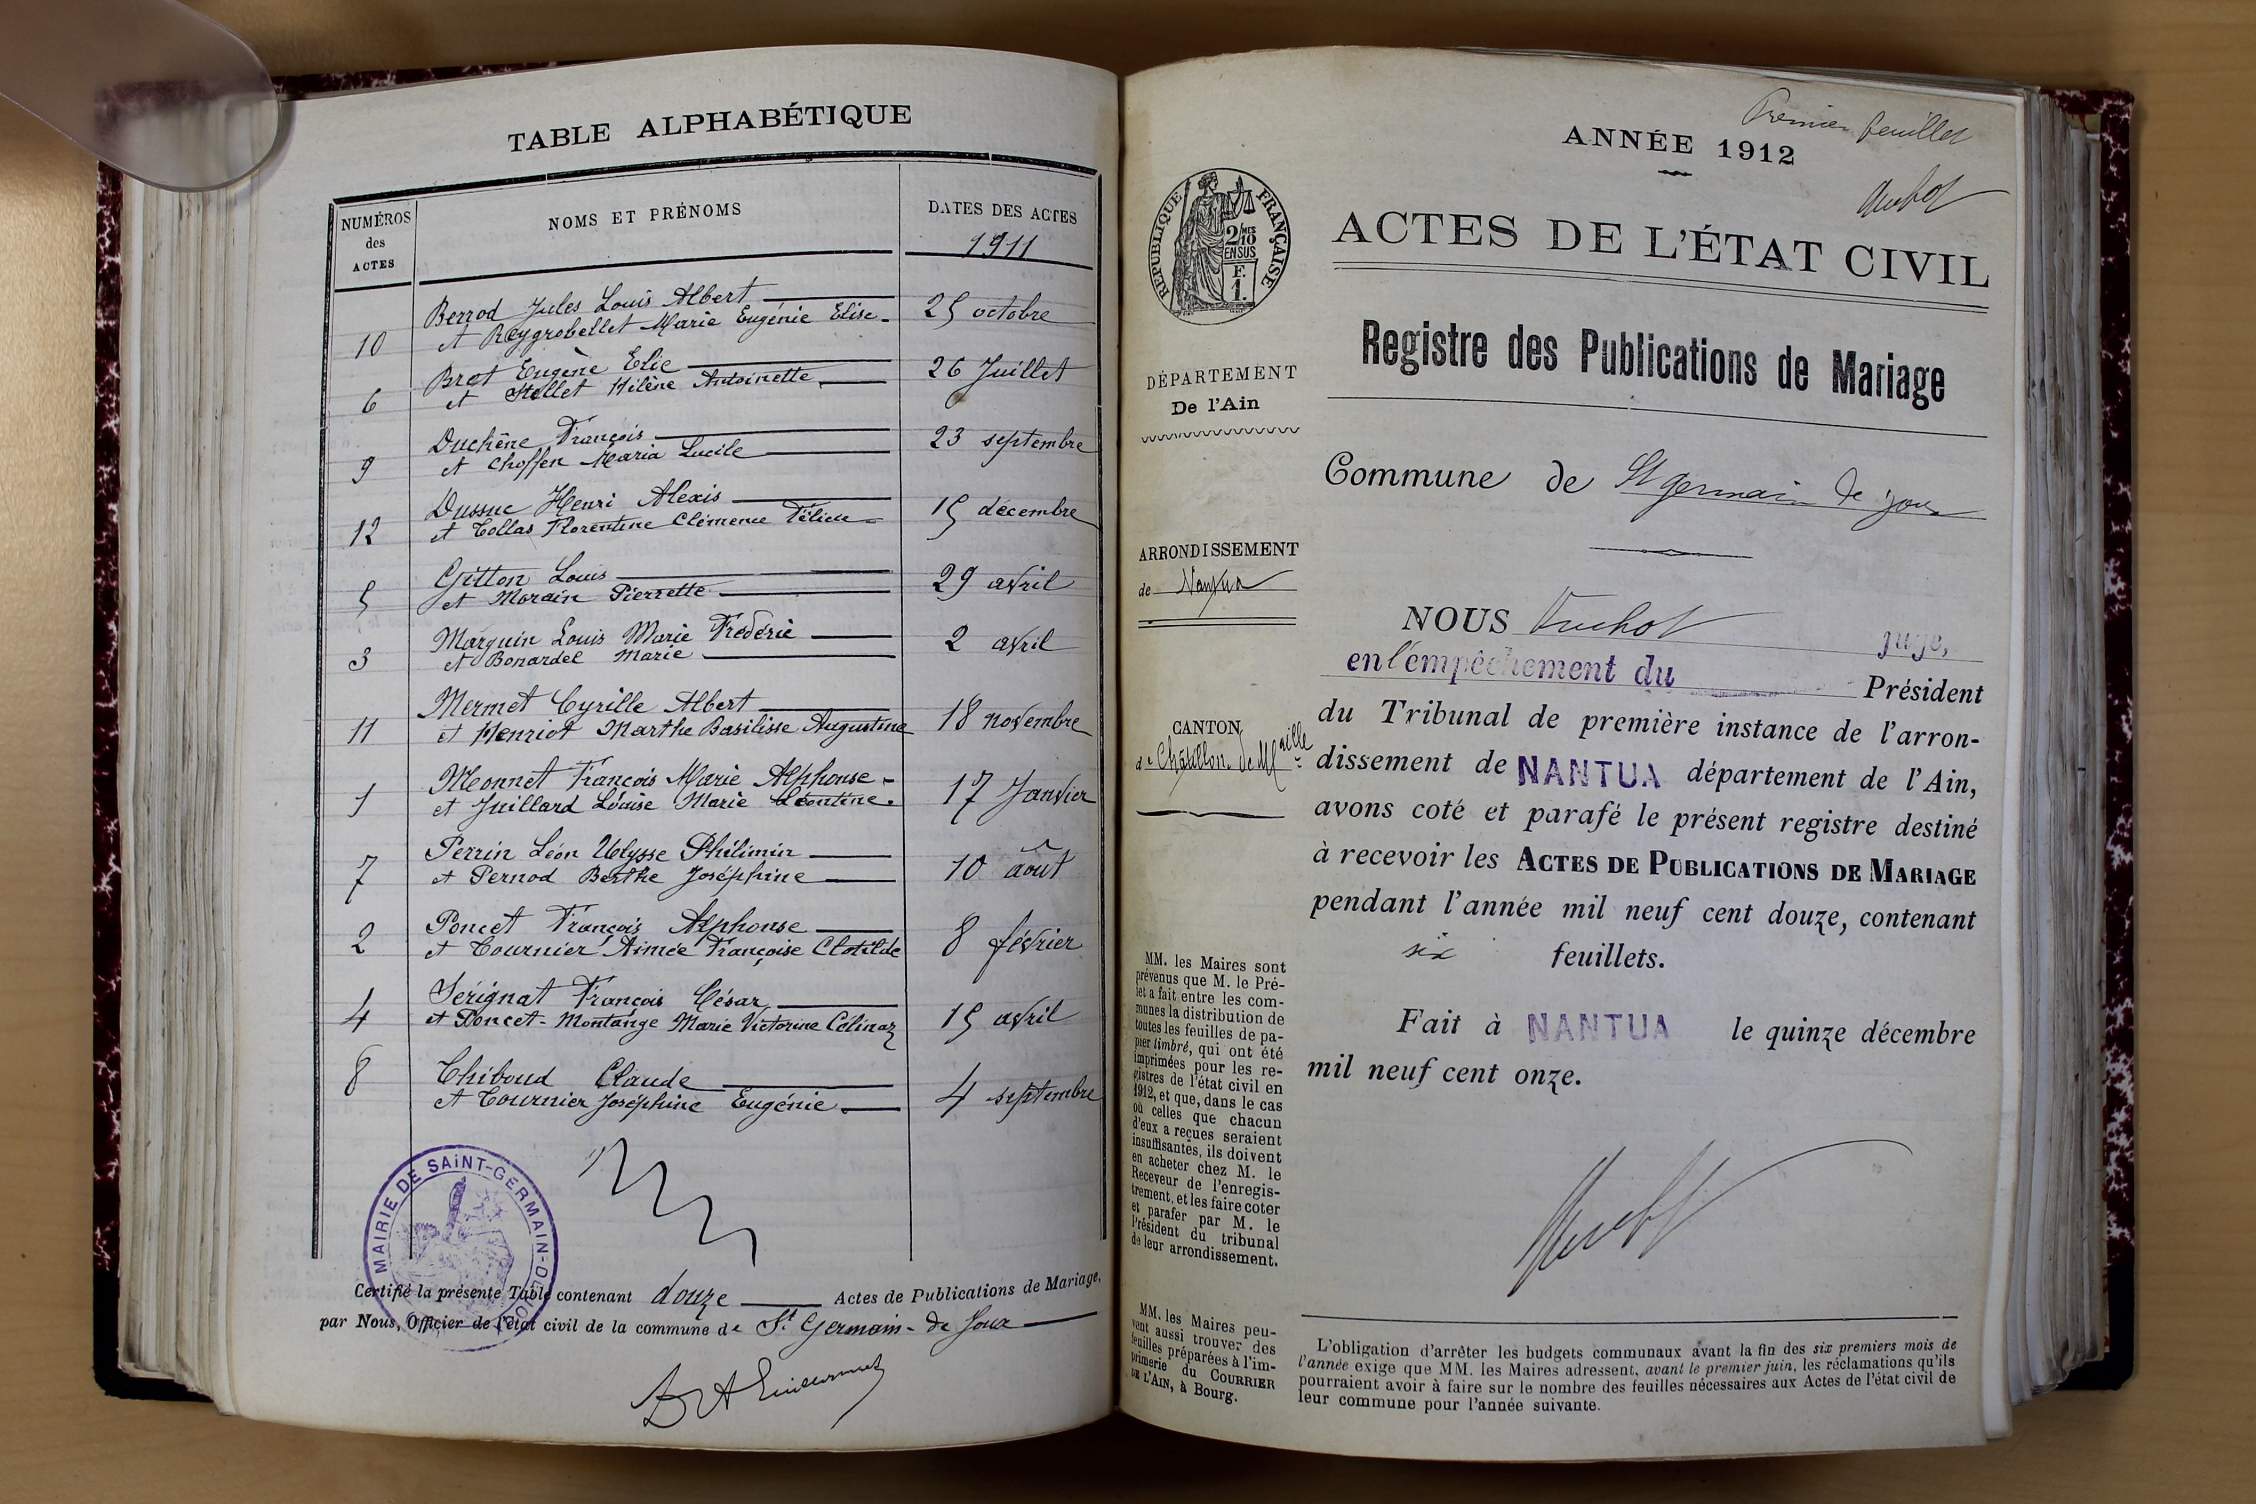 TABLE ALPHABÉTIQUE
NUMÉROS
des
ACTES
NOMS ET PRÉNOMS
DATES DES ACTES
1911
Berrod Jules Louis Albert
10 et Reygrobellet Marie Eugénie Elise 25 octobre
Bret Eugène Elie
6 et Stellet Hélène Antoinette 26 Juillet
Duchêne François
9 et Choffen Maria Lucile 23 septembre
Dussuc Henri Alexis
12 et Collas Florentine Clémence 15 décembre
Gitton Louis
5 et Morain Pierrette 29 avril
Marquin Louis Marie Frédéric
3 et Bonardel Marie 2 avril
Mermet Cyrille Albert
11 et Henriot Marthe Basilisse Augustine 18 novembre
Monnet François Marie Alphonse
1 et Juillard Louise Marie Léontine 17 Janvier
Perrin Léon Ulysse Philimin
7 et Pernod Berthe Joséphine 10 août
Poncet François Alphonse
2 et Tournier Aimée Françoise Clotilde 8 février
Sérignat François César
4 et Poncet-Montange Marie Victorine 15 avril
Thiboud Claude
8 et Tournier Joséphine Eugénie 4 septembre
MAIRIE DE SAINT-GERMAIN-DE-JOUX
Certifié la présente Table contenant douze Actes de Publications de Mariage,
par Nous, Officier de l'état civil de la commune de St Germain-de Joux
Premier feuillet
ANNÉE 1912
Vuchot
RÉPUBLIQUE FRANÇAISE
2/10MES
EN SUS
F.
1.
ACTES DE L'ÉTAT CIVIL
Registre des Publications de Mariage
DÉPARTEMENT
De l'Ain
Commune de St germain de joux
ARRONDISSEMENT
de Nantua
CANTON
de Châtillon de Mlle
NOUS Vuchot juge,
en l'empêchement du Président
du Tribunal de première instance de l'arron-
dissement de NANTUA département de l'Ain,
avons coté et parafé le présent registre destiné
à recevoir les ACTES DE PUBLICATIONS DE MARIAGE
pendant l'année mil neuf cent douze, contenant
six feuillets.
Fait à NANTUA le quinze décembre
mil neuf cent onze.
Vuchot
MM. les Maires sont
prévenus que M. le Pré-
fet a fait entre les com-
munes la distribution de
toutes les feuilles de pa-
pier timbré, qui ont été
imprimées pour les re-
gistres de l'état civil en
1912, et que, dans le cas
où celles que chacun
d'eux a reçues seraient
insuffisantes, ils doivent
en acheter chez M. le
Receveur de l'enregis-
trement, et les faire coter
et parafer par M. le
Président du tribunal
de leur arrondissement.
MM. les Maires peu-
vent aussi trouver des
feuilles préparées à l'im-
primerie du COURRIER
DE L'AIN, à Bourg.
L'obligation d'arrêter les budgets communaux avant la fin des six premiers mois de
l'année exige que MM. les Maires adressent, avant le premier juin, les réclamations qu'ils
pourraient avoir à faire sur le nombre des feuilles nécessaires aux Actes de l'état civil de
leur commune pour l'année suivante.